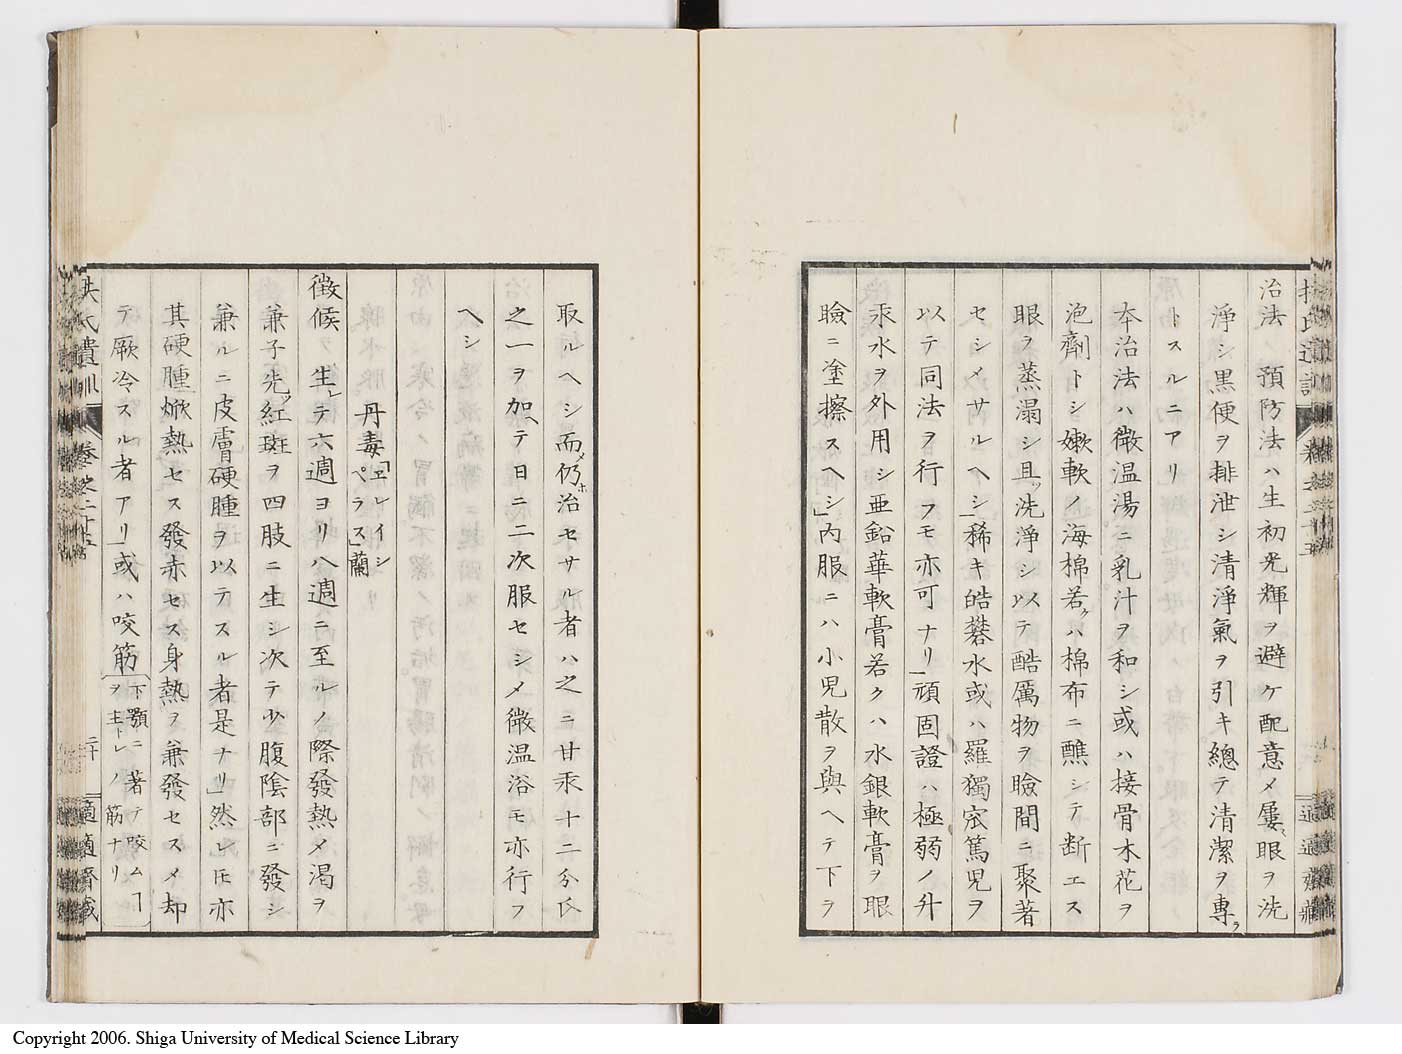 治法ノ預防法ハ生初光輝ヲ避ケ配意メ屢〻眼ヲ洗
淨シ黒便ヲ排泄シ清淨氣ヲ引キ總テ清潔ヲ專ラ
トスルニアリ
本治法ハ微温湯ニ乳汁ヲ和シ或ハ接骨木花ヲ
泡劑トシ嫩軟ノ海棉若クハ棉布ニ醮シテ断エス
眼ヲ蒸溻シ且ツ洗淨シ以テ酷厲物ヲ瞼間ニ聚著
セシメサルヘシ」稀キ皓礬水或ハ羅獨宻篤児ヲ
以テ同法ヲ行フモ亦可ナリ」頑固證ハ極弱ノ升
汞水ヲ外用シ亜鉛華軟膏若クハ水銀軟膏ヲ眼
瞼ニ塗擦スヘシ」内服ニハ小児散ヲ與ヘテ下ヲ
取ルヘシ而メ仍ホ治セサル者ハ之ニ甘汞十二分氏
之一ヲ加ヘテ日ニ二次服セシメ微温浴モ亦行フ
ヘシ
丹毒「エレイシペラス」蘭
徴候 生レテ六週ヨリ八週ニ至ルノ際發熱メ渇ヲ
兼子先ツ紅斑ヲ四肢ニ生シ次テ少腹陰部ニ發シ
兼ルニ皮膚硬腫ヲ以テスル者是ナリ」然レ𪜈亦
其硬腫焮熱セス發赤セス身熱ヲ兼發セスメ却
テ厥冷スル者アリ」或ハ咬筋〔下顎ニ著テ咬ムヿヲ主トレノ筋ナリ〕
扶氏遺訓 卷之二十五 二十 適適齋藏